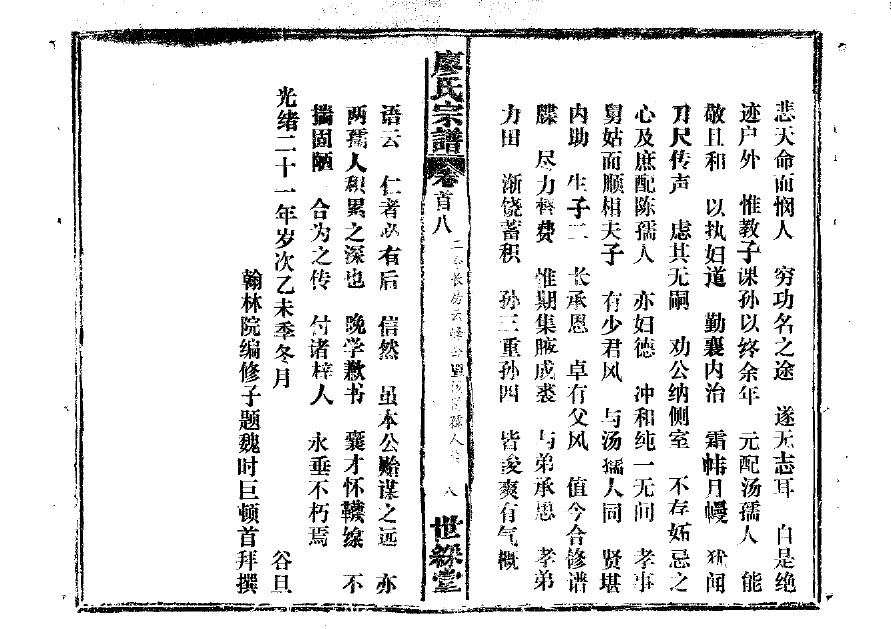 悲天命而悯人 穷功名之途 遂无志耳 自是绝
迹户外 惟教子课孙以终余年 元配汤孺人 能
敬且和 以执妇道 勤襄内治 霜帏月幔 犹闻
刀尺传声 虑其无嗣 劝公纳侧室 不存妬忌之
心及庶配陈孺人 亦妇德 冲和纯一无间 孝事
舅姑而顺相夫子 有少君风 与汤孺人同 贤堪
内助 生子二 长承恩 卓有父风 值今合修谱
牒 尽力督费 惟期集腋成裘 与弟承恩 孝弟
力田 渐饶蓄积 孙三重孙四 皆俊爽有气概
廖氏宗譜 卷首八
长房云峰公 孺人
八
世綵堂
语云 仁者必有后 信然 虽本公贻谋之远 亦
两孺人积累之深也 晚学歉书 囊才怀襪線 不
揣固陋 合为之传 付诸梓人 永垂不朽焉
光绪二十一年岁次乙未季冬月 谷旦
翰林院编修子题魏时巨顿首拜撰